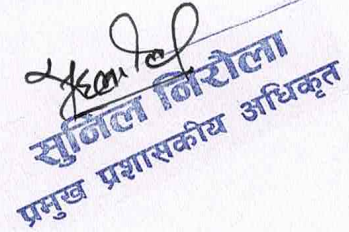 सुनिल निरौला
प्रमुख प्रशासकीय अधिकृत